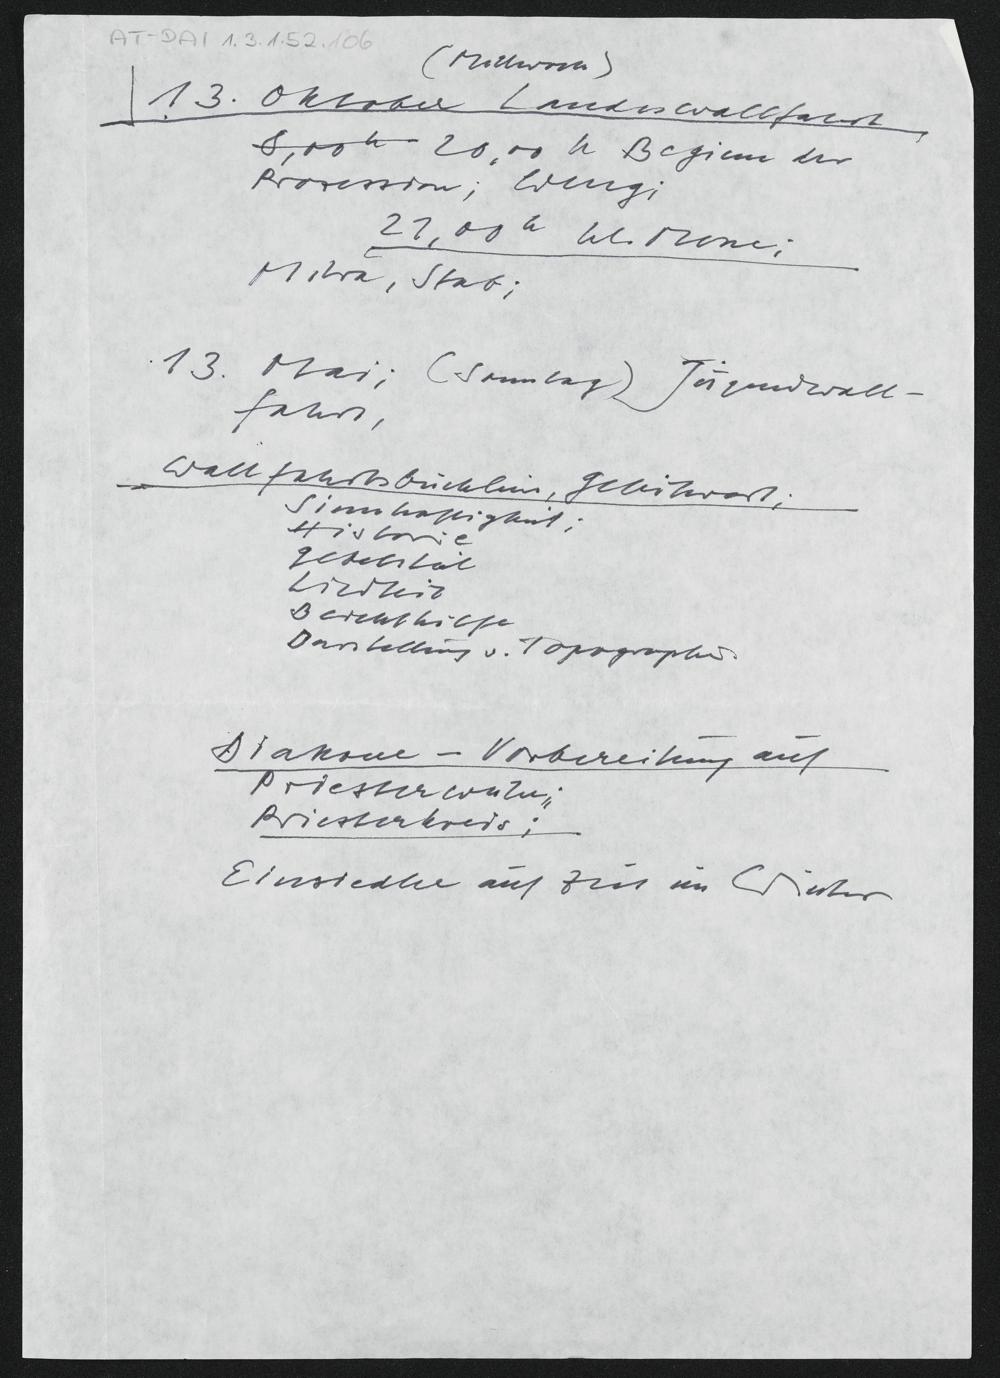 AT-DAI 1.3.1.52.106
(Mittwoch)
13. Oktober Landeswallfahrt,
8,00 h 20,00 h Beginn der
Prozession; 
21,00 h hl. Messe;
Mitra, Stab;
13. Mai; (Sonntag) Jugendwall-
fahrt,
Wallfahrtsbüchlein, Geleitwort;
Sinnhaftigkeit;
Historie
Gebetsteil
Liedteil
Beichthilfe
Darstellung u. Topographie.
Diakone - Vorbereitung auf
Priesterweihe;
Priesterkreis;
Einsiedler auf Zeit im Winter